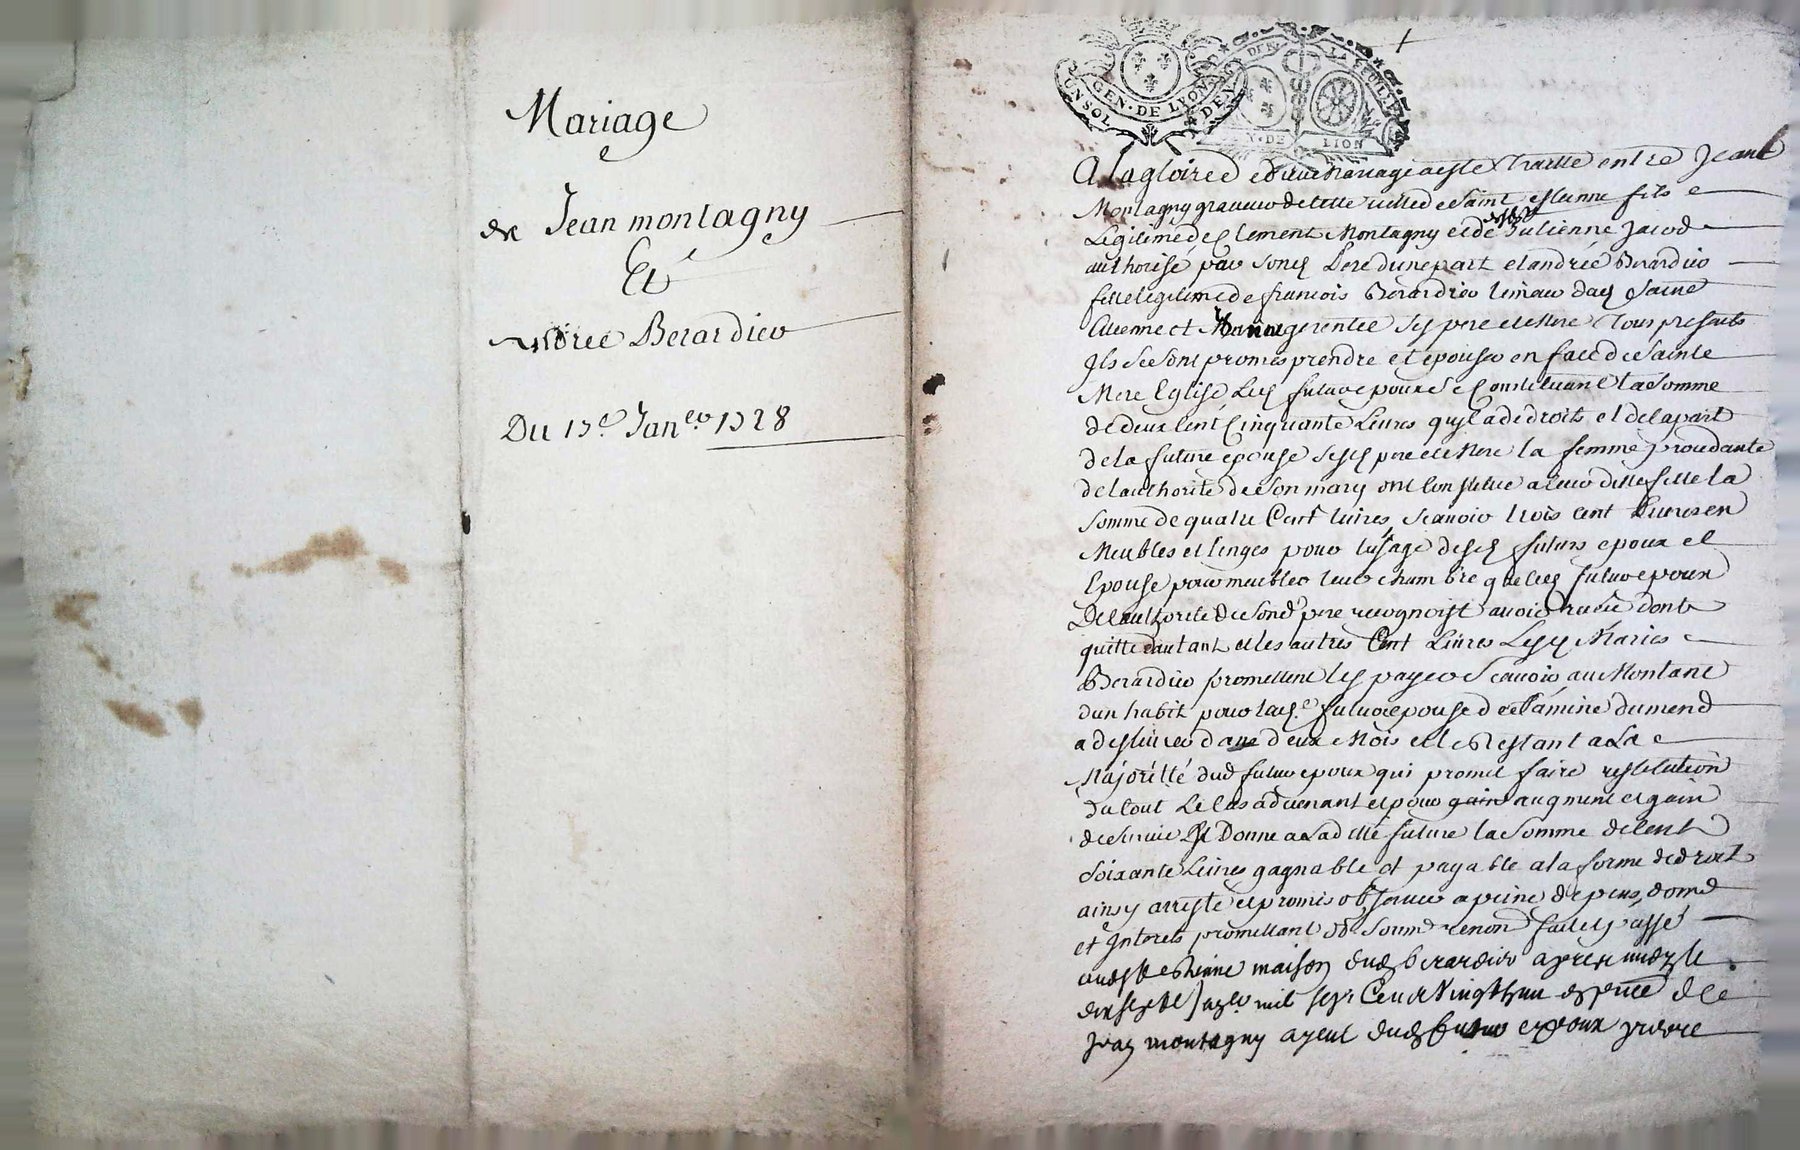 Mariage
de Jean montagny
Et
Andrée Berardier
Du 17e Janer 1728
GEN · DE LYON
N · DE LION
A la gloire de dieu Mariage a esté traitté entre Jean
Montagny graveur de cette ville de Saint estienne fils
Legitime de Clement Montagny et de Julienne Jacod
authorisé par Sond Pere dunepart et andrée Berardier
fille legitime de francois Berardier limeur dud Saint
Etienne et gerentet Ses pere et Mere tous presents
Ils Se Sont promis prendre et epouser en face de Sainte
Mere Eglise Led futur epoux Se Constituant la Somme
de deux Cent Cinquante Livres quil a de droits et de la part
de la future epouse Sesd pere et Mere la femme procedante
de lauthorité de Son mary ont Constitué a leur ditte fille la
Somme de quatre Cent livres, Scavoir trois cent Livres en
Meubles et linges pour lusage desd futurs epoux et
Epouse pour meubler leur chambre que led futur epoux
De lauthorité de Sond pere recognoist avoir recüe dont
quitte dautant et les autres Cent Livres Lesd Maries
Berardier promettent les payer Scavoir au Montant
dun habit pour lad.e future epouse detamine dumend
a deslivrer dans deux Mois et le Restant a La
Majorétté dud futur epoux qui promet faire restitution
du tout Le Cas advenant et pour gain augment et gain
de Survie Il Donne a Sad itte future la Somme de Cent
Soixante Livres gagnable et payable a la forme dedroit
ainsy arresté et promis observer a peine depens, domd
et Interets promettant obd Soumd renond fait et passé
aud St etienne maison dud berardier apres midy le
dix sept Janer mil sept Cent Vingt huit en pnce de
Jean montagny ayeul dud futur epoux pierre